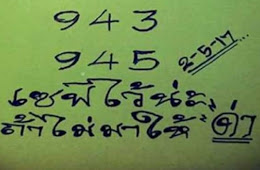 943
945 2-5-17
เซฟไว้น่ะ
ถ้าไม่มาให้ "ด่า"